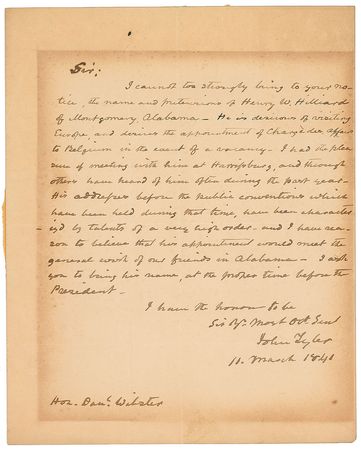 Sir;
I cannot too strongly bring to your no-
tice, the name and pretensions of Henry W. Hilliard
of Montgomery Alabama - He is desirous of visiting
Europe, and desires the appointment of Chargé des Affairs
to Belgium in the event of a vacancy - I had the plea-
sure of meeting with him at Harrisburg, and through
others have heard of him often during the past year -
His addresses before the public conventions which
have been held during that time, have been character-
ized by talents of a very high order - and I have rea-
son to believe that his appointment would meet the
general wish of our friends in Alabama - I ask
you to bring his name, at the proper time before the
President -
I have the honor to be
Sir Yr. Most Obt Servt
John Tyler
11 March 1841
Hon. Danl. Webster